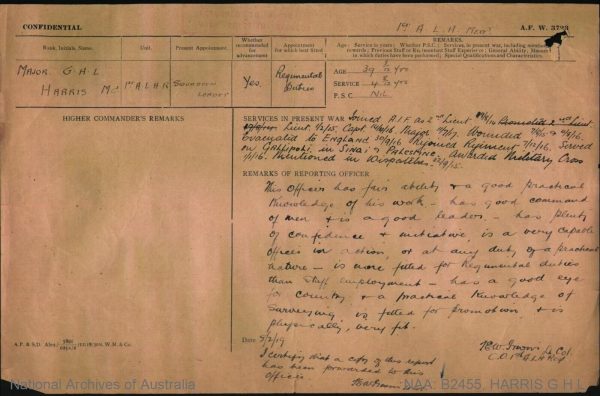 CONFIDENTIAL
1st A. L. H. Regt
A.F. W. 3723
Rank, Initials, Name.
Unit.
Present Appointment.
Whether recommended for advancement.
Appointment for which best suited.
REMARKS.
Age : Service in years : Whether P.S.C. : Services in present war, including
rewards : Previous Staff or Regimental Staff Experience : General Ability, Manner
in which duties have been performed : Special Qualifications and Characteristics.
MAJOR G. H. L
HARRIS M.C
1st A L H R
SQUADRON
LEADER
Yes.
Regimental
Duties
AGE
SERVICE
P. S. C. Nil
HIGHER COMMANDER'S REMARKS
SERVICES IN PRESENT WAR. Joined A.I.F. as 2nd Lieut
Lieut. Capt Major Wounded
Evacuated to ENGLAND Rejoined Regiment 7/12/16. Served
on GALLIPOLI, in SINAI & PALESTINE. Awarded Military Cross
Mentioned in Dispatches
REMARKS OF REPORTING OFFICER
This Officer has fair ability & a good practical
knowledge of his work – has good command
of men & is a good leader – has plenty
of confidence & initiative is a very capable
officer in action, or at any duty of a practical
nature – is more fitted for Regimental duties
than Staff employment – has a good eye
for country, & a practical knowledge of
surveying is fitted for promotion & is
physically very fit.
Date 5/2/19
Lt Col.
C.O. 1st A L H Regt
I certify that a copy of this report
has been forwarded to this
officer.
A.P. & S.D. Alex./
W.H. & Co.
National Archives of Australia
NAA: B2455, HARRIS G H L